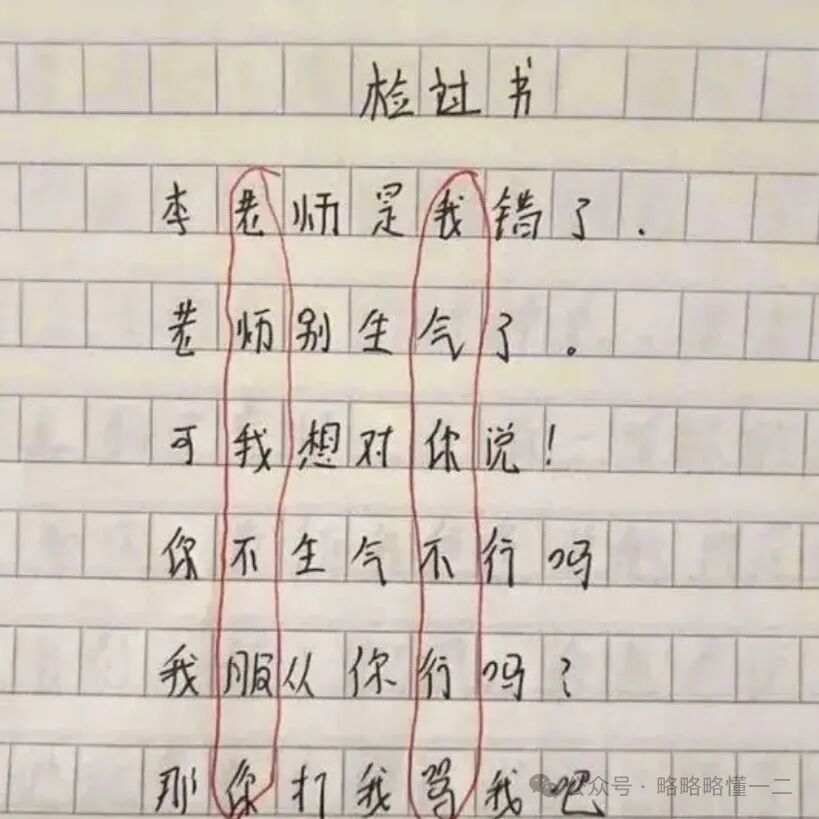 检过书
李老师是我错了.
老师别生气了。
可我想对你说!
你不生气不行吗
我服从你行吗?
那你打我骂我吧
公众号·略略略懂一二